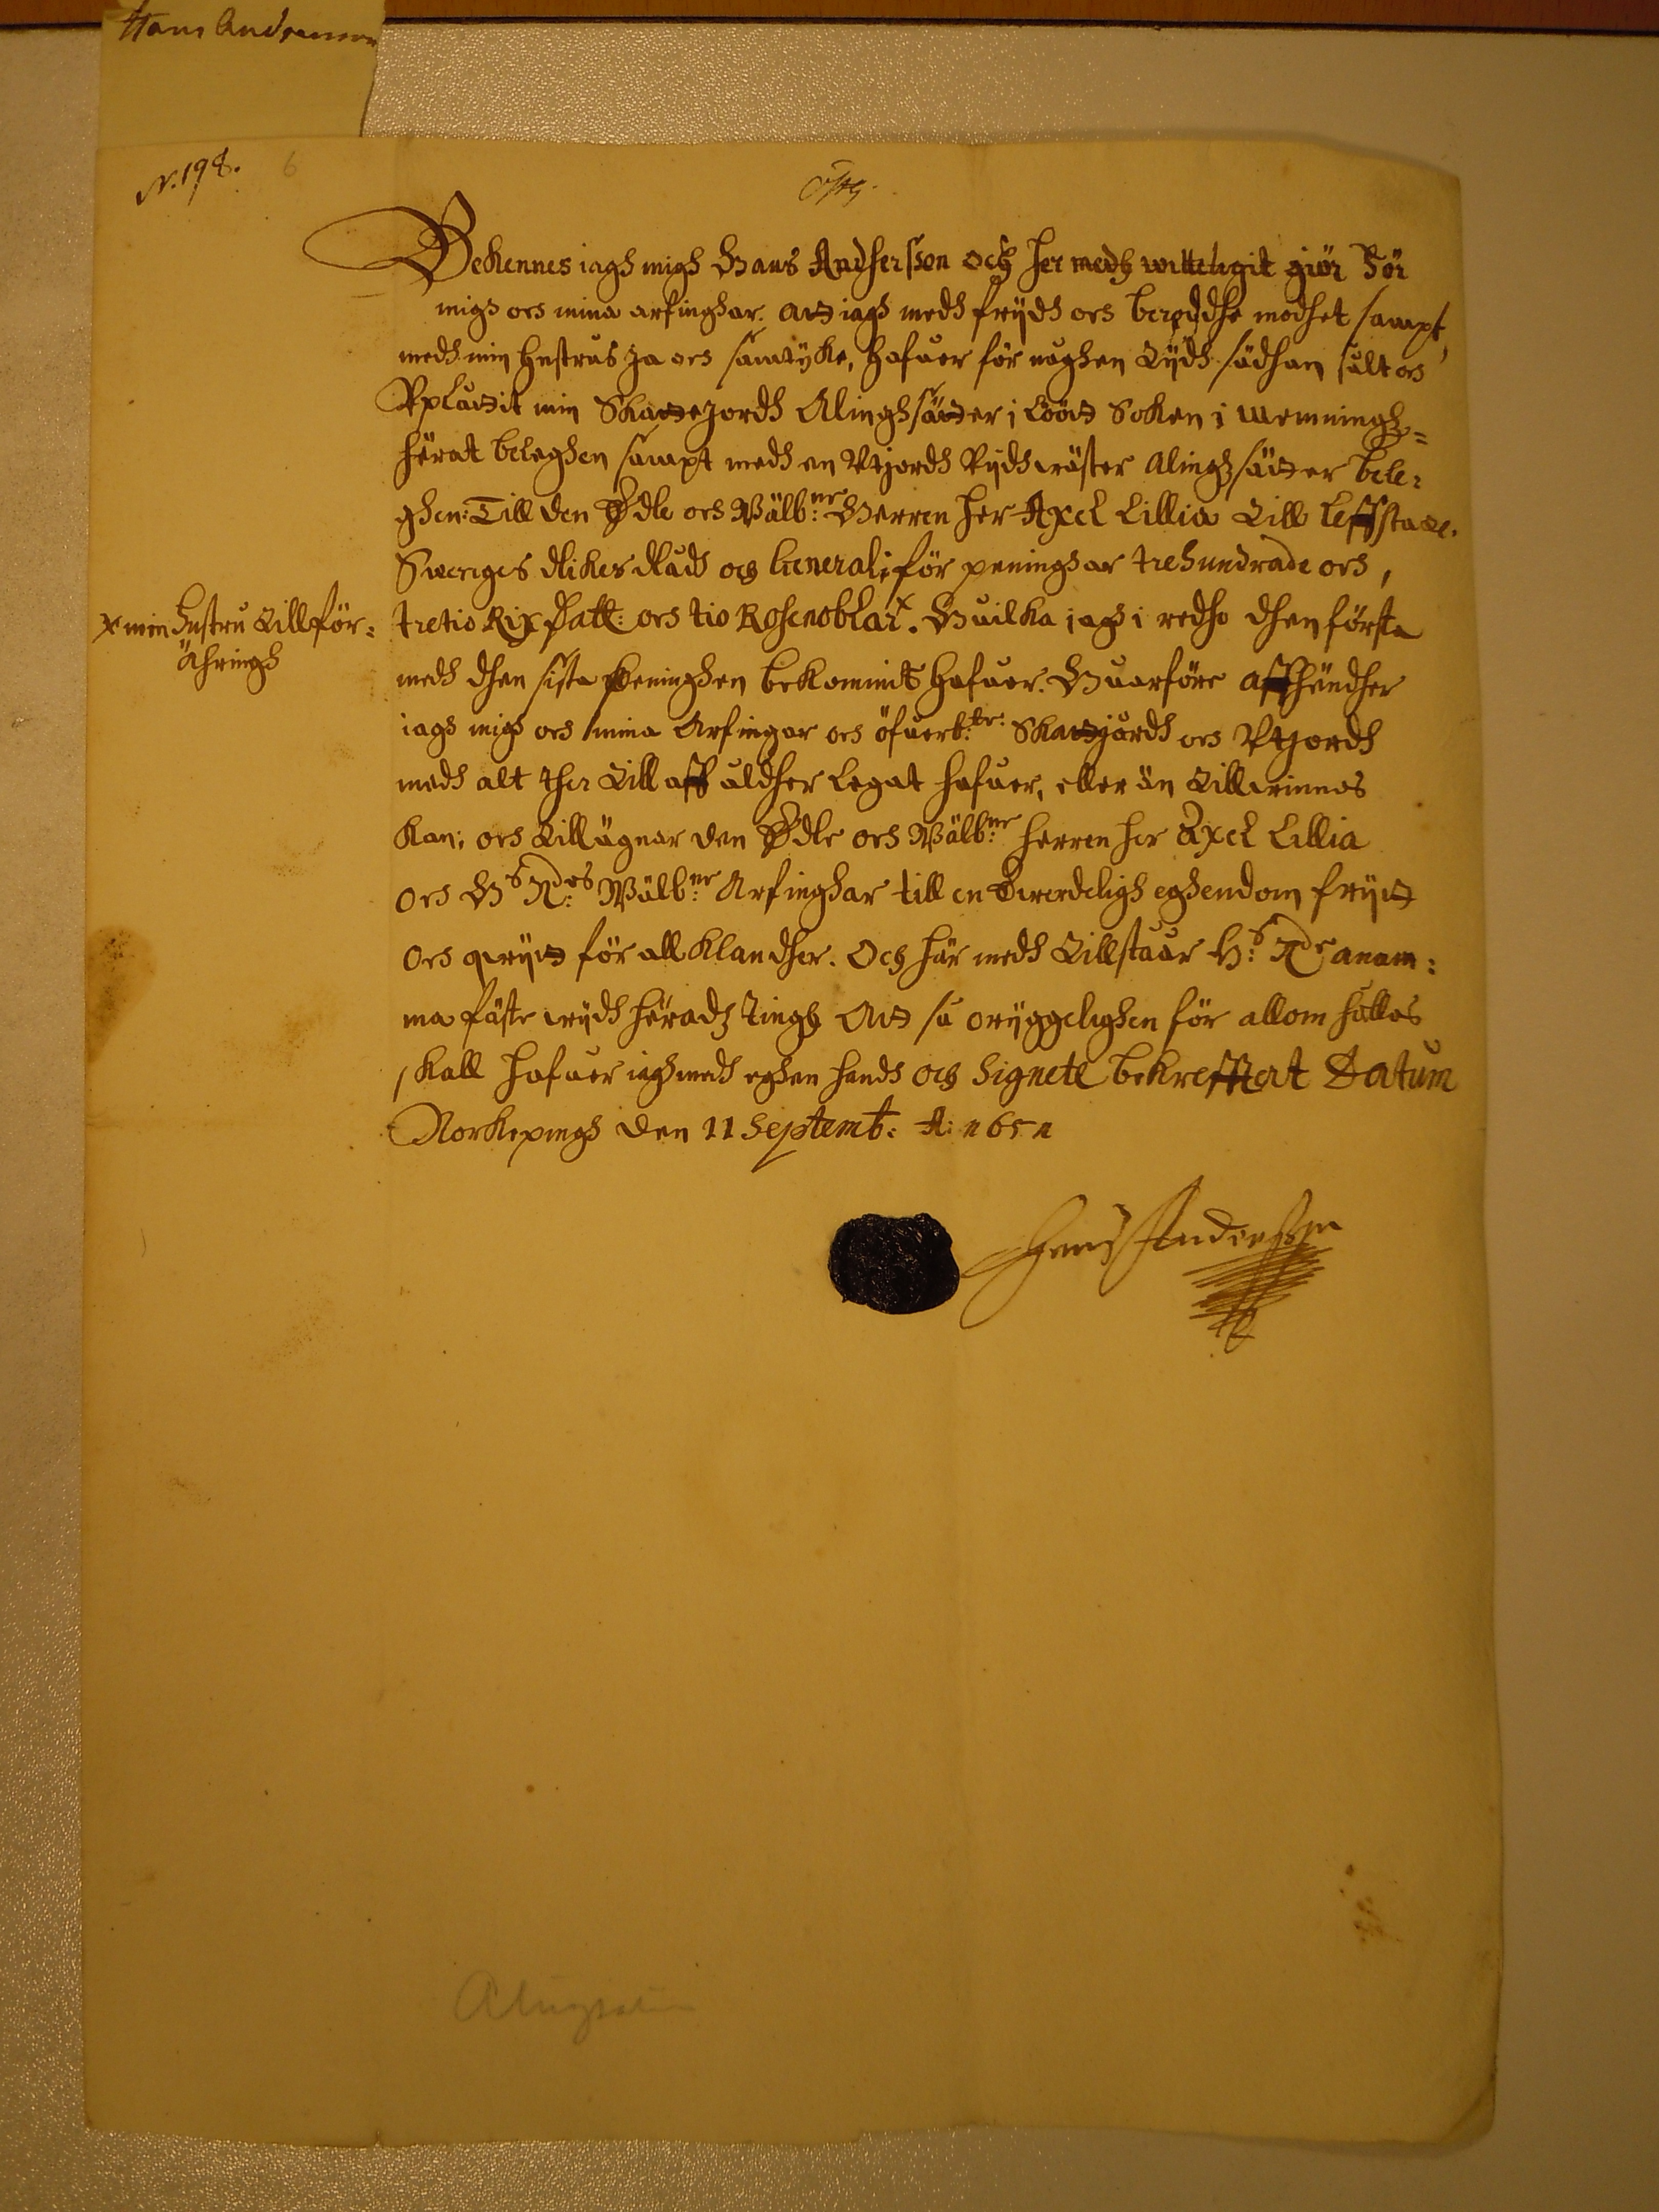 Hans Andersson
N. 198. 6
Östg.
Bekennes iagh migh Hans Andhersson och her medh witteligit giör För
migh och mina arfinghar. att iagh medh frijdh och berådde modhet sampt
medh min hustrus ja och samtÿke, hafuer för nughen tijdh sådhan sålt och
Vplåtit min Skattejordh Alinghsätter i Löött Soken i Memmingz=
herat beleghen sampt medh en Vtjordh Vijdh wäster Alinghsätter bele=
ghen: Till den Edle och Wälb:ne Herren her Axel Lillia till Leffstadt.
Sweriges Rikes Rådh och General; för peninghar trehundrade och,
tretio Rix Datt: och tio Rosenoblar x. Huilka iagh i redho dhen första
x min hustru till för=
ähringh
medh dhen sista peninghen bekommit hafuer. Huarföre affhändher
iagh migh och mina Arfingar och öfuerb:te: Skattjordh och Vtjordh
medh alt ther till aff ålder legat hafuer, eller än tillwinnas
kan; och tillägnar den Edle och Wälb:ne herren her Axel Lillia
och H:s N:des Wälb:ne Arfinghar till en Ewerdeligh eghendom frijtt
och qwijtt för all klandher. Och här medh tillståår H:s N:de anam=
ma fäste wijdh häradz Tingh Att så oryggelighen för allom hålles
skall hafuer iagh medh eghen handh och Signete bekrefftert Datum
Norkepingh den 11 Septemb: A: 1651
Hans Andersson
Alingsätter